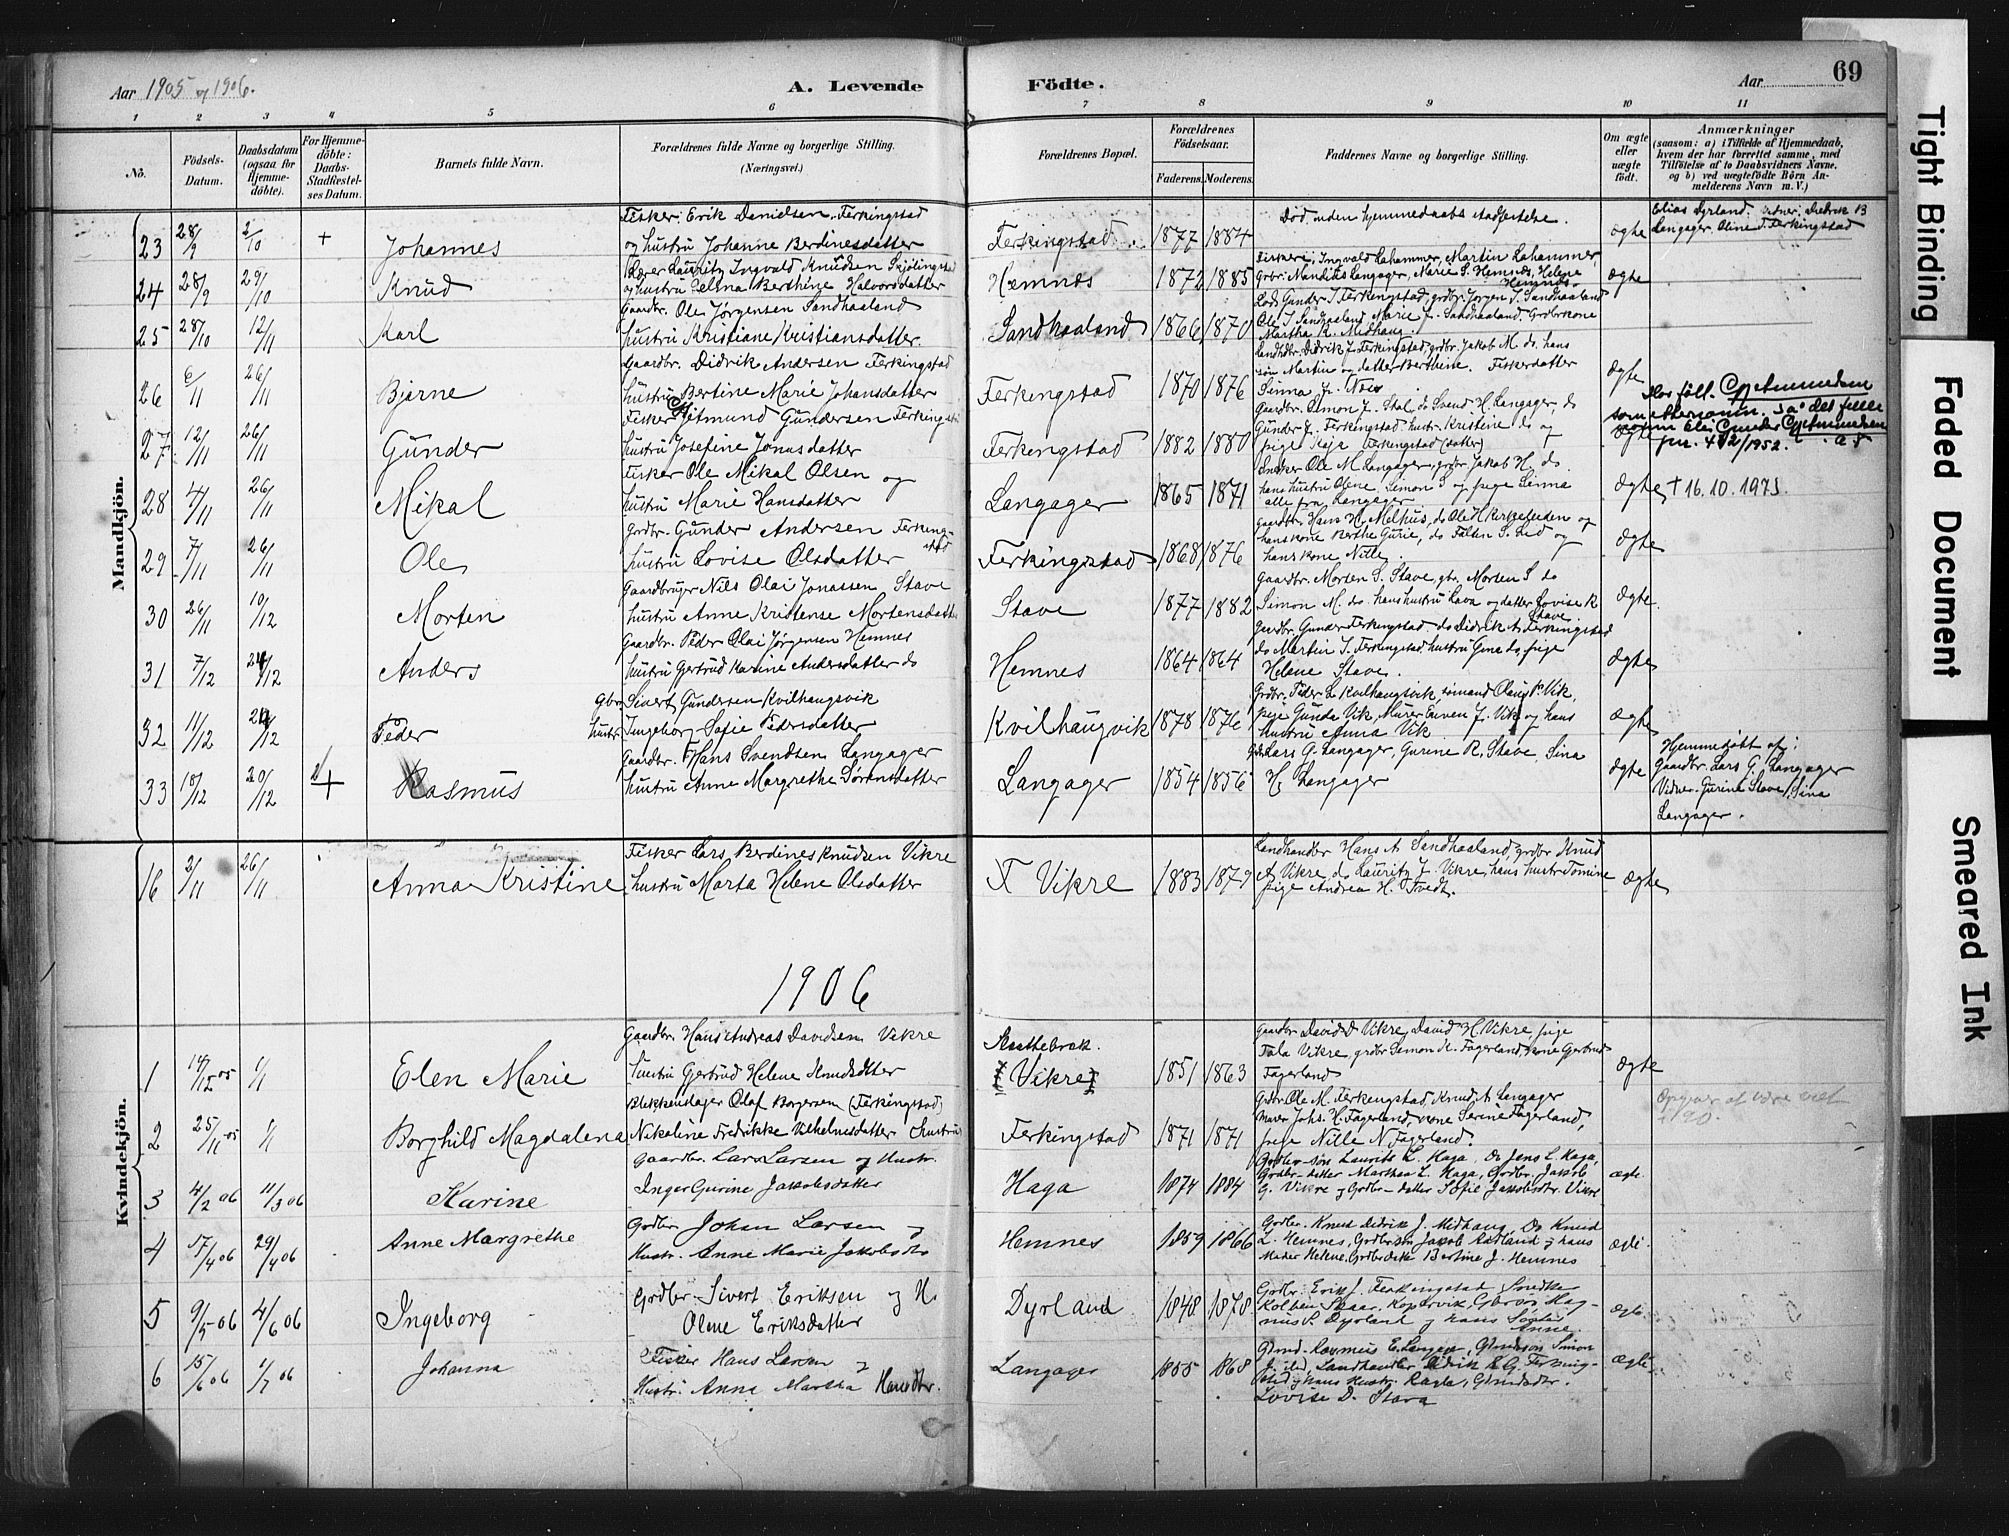 Aar 1905 og 1906.
A. Levende Födte.
Aar
69
1 2 3 4 5 6 7 8 9 10 11
No.
Födsels-Datum.
Daabsdatum (ogsaa for Hjemme-döbte).
For Hjemme-döbte: Daabs-Stadfæstel-ses Datum.
Barnets fulde Navn.
Forældrenes fulde Navne og borgerlige Stilling.
(Næringsvei.)
Forældrenes Bopæl.
Forældrenes Födselsaar.
Faderens. Moderens.
Faddernes Navne og borgerlige Stilling.
Om ægte eller uægte födt.
Anmærkninger
(saasom: a) i Tilfælde af Hjemmedaab, hvem der har forrettet samme, med Tilföielse af to Daabsvidners Navne. og b) ved uægtefödte Börn An-melderens Navn m. V.)
Mandkjön.
23 28/9 2/10 + Johannes
Fisker Erik Danielsen Ferkingstad
og hustru Johanne Berdinesdatter
Ferkingstad 1877 1884
Død uden hjemmedaabs stadfestelse.
ægte
Elias Dyrland. Vidner. Diedrik B
Langager. Oline T. Ferkingstad
24 28/9 29/10 Knud
Lærer Lauritz Ingvald Knudsen
og hustru Selina Berthine Halvorsdatter
Hemnes 1872 1885
Martin Lahammer
Langager, Marie S. Hemnes, Helene
Hemnes
ægte
25 28/10 12/11 Karl
Gaardbr. Ole Jørgensen Sandhaaland
hustru Kristiane Kristiansdatter
Sandhaaland 1866 1870
Lods Gunder J Ferkingstad, grdbr. Jørgen J. Sandhaaland
Ole J Sandhaaland Marie J. Sandhaaland. Grdbrkone
Martha K. Midhaug.
26 6/11 26/11 Bjarne
Gaardbr. Didrik Andersen Ferkingstad
hustru Bertine Marie Johansdatter
Ferkingstad 1870 1876
Landhdbr. Didrik J. Ferkingstad, grdbr. Jakob M do. hans
søn Martin og datter Berthine. Fiskerdatter
Sinna J.
ægte
27 12/11 26/11 Gunder
Fisker Gitmund Gundersen Ferkingstad
hustru Josefine Jonasdatter
Ferkingstad 1882 1880
Gaardbr. Simon J. Stol, do Svend H. Langager, do
Gunder J. Ferkingstad hustr. Kristine do og
pige Kaja Ferkingstad (datter)
ægte
som etternamn. Så det fulle
jnr. 412/1952.
28 4/11 26/11 Mikal
Fisker Ole Mikal Olsen og
hustru Marie Hansdatter
Langager 1865 1871
Snekker Ole M. Langager, grdbr. Jakob H. do.
hans hustru Olene. Simon S og pige Sinna
alle fra Langager
ægte † 16.10.1975.
29 7/11 26/11 Ole
Grdbr. Gunder Andersen Ferking-
stad
hustru Lovise Olsdatter
Ferkingstad 1868 1876
Gaardbr. Hans H. Melhus, do Ole H Kirkeleiden og
hans kone Berthe Gurie, do Falten S. Lid og
hans kone Nille.
ægte
30 26/11 10/12 Morten
Gaardbruger Nils Olai Jonassen Stave
hustru Anne Kristense Mortensdatter
Stave 1877 1882
Gaardbr. Morten S. Stave, gbr. Morten S do
Simon M. do. hans hustru Lava og datter Lovise K
Stave
ægte.
31 7/12 24/12 Anders
Gaardbr. Peder Olai Jørgensen Hemnes
hustru Gertrud Karine Andersdatter do
Hemnes 1864 1864
Gaardbr. Gunder Ferkingstad. do Didrik A. Ferkingstad
do Martin J. Ferkingstad hustru Gina do, pige
Helene Stave.
ægte
32 11/12 24/12 Peder
gbr. Sivert Gundersen Kvilhaugsvik
hustr. Ingeborg Sofie Pedersdatter
Kvilhaugvik 1878 1876
Grdbr. Peder L Kvilhaugsvik, sømand Olaus P. Vik,
Pige Gunda Vik, Murer Enven J. Vik og hans
hustru Anna Vik
ægte
33 18/12 20/12 + Rasmus
Gaardbr. Hans Svendsen Langager
hustru Anne Margrethe Sørensdatter
Langager 1854 1856
Grdb. Lars G. Langager, Gurine R. Stave, Sina
H. Langager
ægte
Hjemmedøbt af:
Gaardbr. Lars G. Langager
Vidner. Gurine Stave, Sina
Langager.
Kvindekjön.
16 2/11 26/11 Anna Kristine
Fisker Lars Berdines Knudsen Vikre
hustru Marta Helene Olsdatter
Vikre 1883 1879
Landhandler Hans A Sandhaaland, grdbr Knud
A Vikre, do Lauritz J. Vikre, hans hustr Tomine
pige Andrea H. Tvedt.
ægte
1906
1 14/12 05 1/1 Elen Marie
Gaardbr. Hans Andreas Davidsen Vikre
hustru Gertrud Helene Knudsdatter
Vikre 1851 1863
Gaardbr David D Vikre, David H. Vikre pige
Tala Vikre, grdbr Simon K. Fagerland, kone Gertrud
Fagerland
ægte
2 25/11 05 1/1 Borghild Magdalena
Blikkenslager Olaf Borgersen (Ferkingstad)
Nikoline Fredrikke Vilhelmsdatter hustru
Ferkingstad 1871 1871
Grdbr Ole M. Ferkingstad, Knud A Langager
Murer Johs. H. Fagerland, kone Serine Fagerland,
pige Nille N Fagerland.
3 4/2 06 11/3 06 Karine
Gaardbr. Lars Larsen og Hustr.
Inger Gurine Jakobsdatter
Haga 1874 1884
Grdbr-søn Laurits L. Haga, Do Jens L. Haga,
Grdbr-datter Marthea L. Haga, Grdbr. Jakob
G. Vikre og Grdbr-datter Sofie Jakobsdtr. Vikre
ægte.
4 17/4 06 29/4 06 Anne Margrethe
Grdbr. Johan Larsen og
Hustr. Anne Marie Jakobsdtr
Hemnes 1859 1866
Grdbr. Knud Didrik J. Midhaug, Do Knud
L. Hemnes, Grdbrsøn Jakob Rødland og hans
Moder Helene, Grdbrdatter Bertine J. Hemnes
ægte.
5 9/5 06 4/6 06 Ingeborg
Grdbr. Sivert Eriksen og H.
Olene Eriksdatter
Dyrland 1848 1878
Grdbr. Erik J. Ferkingstad Snedker
Kolben Skaar, Kopervik, Gbrsøn Mag-
nus S. Dyrland og hans Søster
Anne.
ægte.
6 15/6 06 1/7 06 Johanna
Fisker Hans Larsen og
Hustr. Anna Martha Hansdtr.
Langager 1855 1868
Rasmus E. Langager, Simon
Landhandler Didrik Ferking-
stad og hans Hustr.
Lovise D. Stava
ægte
Tight Binding
Faded Document
Smeared Ink